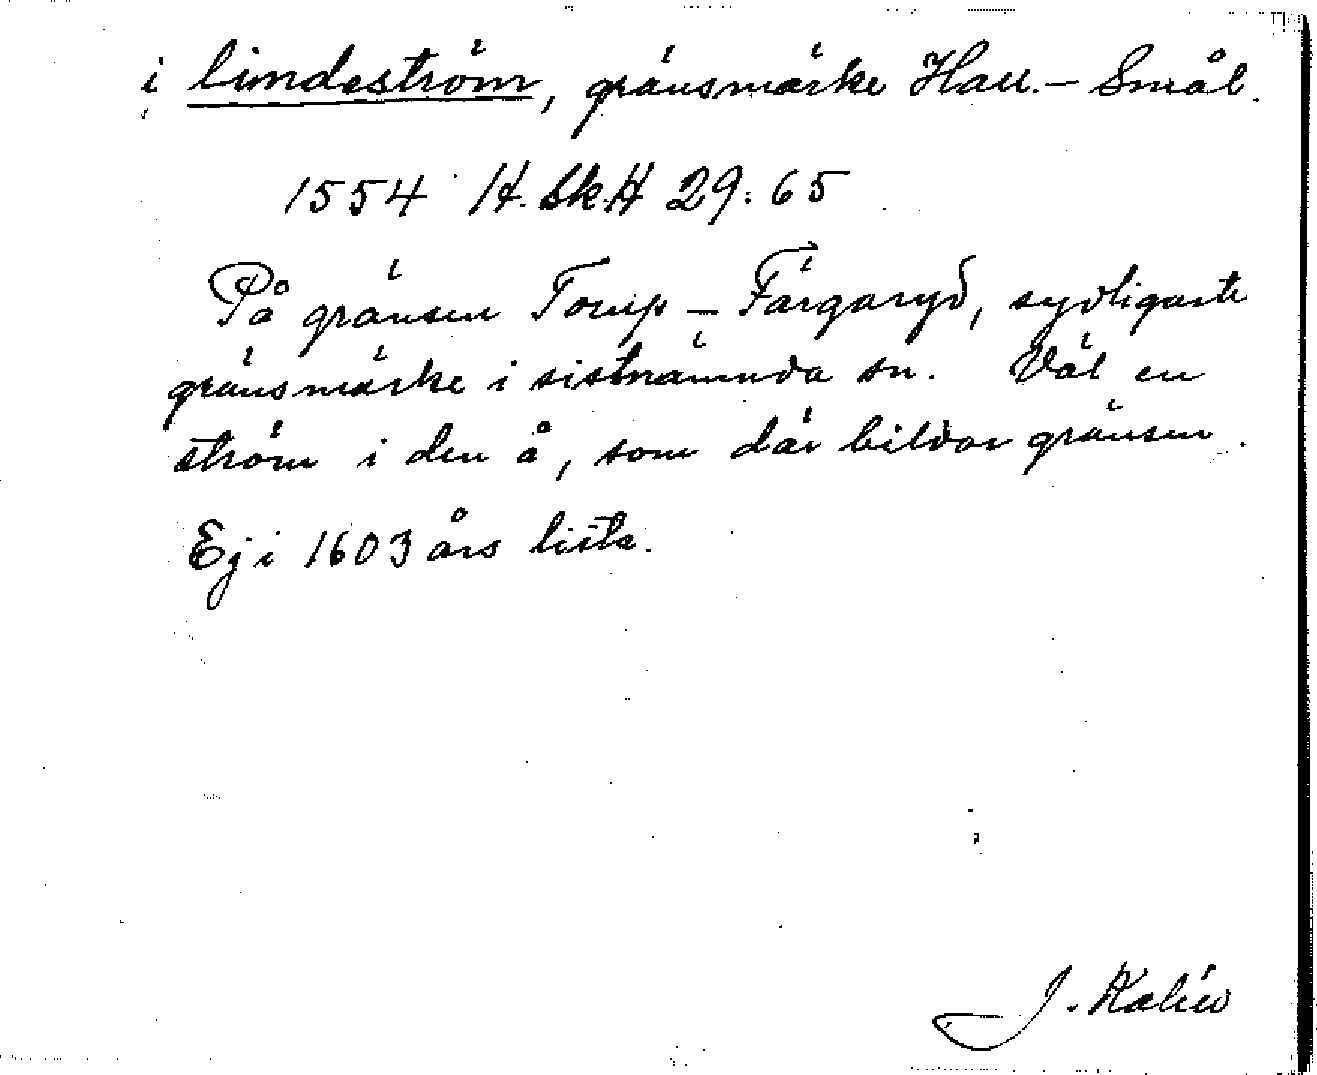 i lindeström, gränsmärke Hall. – Smål.
1554 H.Sk.H 29:65
På gränsen Torup – Färgaryd, sydligaste
gränsmärke i sistnämnda sn. Väl en
ström i den å, som där bildar gränsen.
Ej i 1603 års lista.
J. Kalén